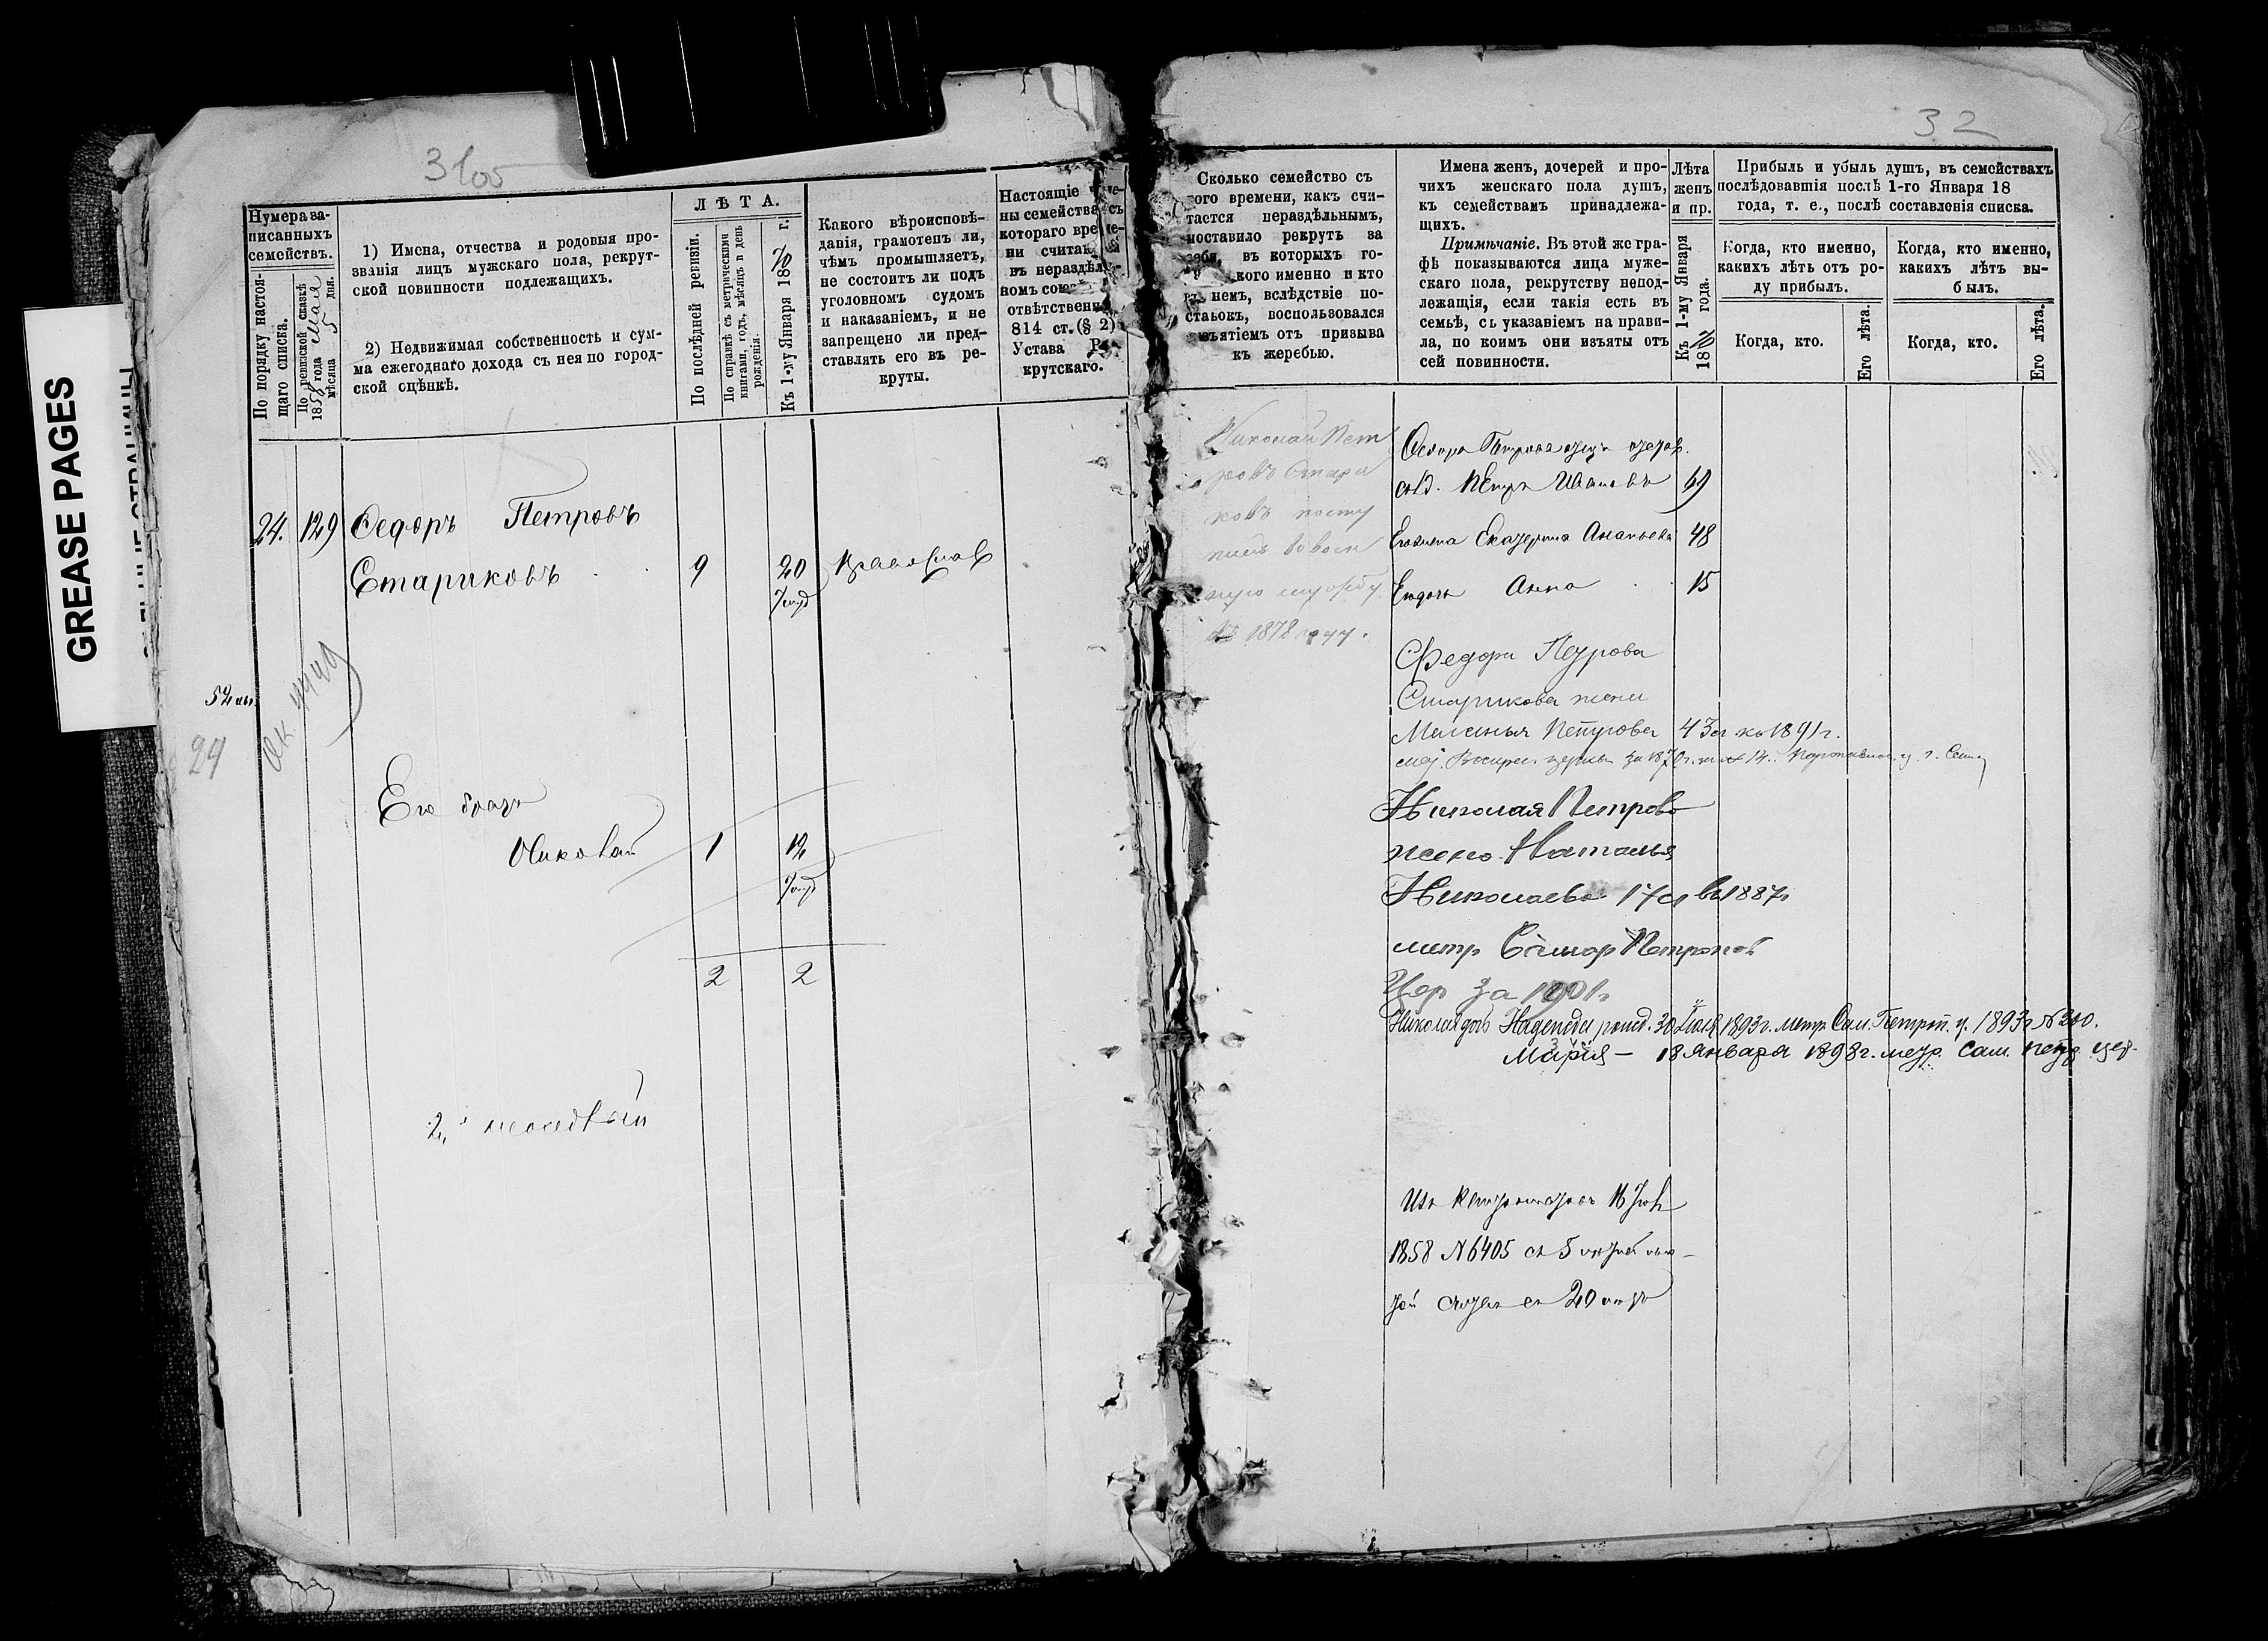 GREASE PAGES
31 об
Нумера за-
писанныхъ
семействъ.
По порядку настоя-
щаго списка.
По ревизской сказкѣ
1858 года Мая
мѣсяца 5 дня.
1) Имена, отчества и родовыя про-
званія лицъ мужскаго пола, рекрут-
ской повинности подлежащихъ.
2) Недвижимая собственность и сум-
ма ежегоднаго дохода съ нея по город-
ской оцѣнкѣ.
ЛѢТА.
По послѣдней ревизіи.
По справкѣ съ метрическими
книгами, годъ, мѣсяцъ и день
рожденія.
Къ 1-му Января 1870 г.
Какого вѣроисповѣ-
данія, грамотенъ ли,
чѣмъ промышляетъ,
не состоитъ ли подъ
уголовномъ судомъ
и наказаніемъ, и не
запрещено ли пред-
ставлять его въ ре-
круты.
Настоящіе
ны семейства
котораго вре
ни счита
въ нераздѣл
номъ союз
отвѣтственн
814 ст. (§ 2)
Устава Р
крутскаго.
24. 129 Ѳедоръ Петровъ
Стариковъ 9 20 Православ
29
Его братъ
Николай 1 12
2 2
32
Сколько семейство съ
того времени, какъ счи-
тается нераздѣльнымъ,
поставило рекрутъ за
себя, въ которыхъ го-
кого именно и кто
въ немъ, вслѣдствіе по-
становокъ, воспользовался
изъятіемъ отъ призыва
къ жеребью.
Имена женъ, дочерей и про-
чихъ женскаго пола душъ,
къ семействамъ принадлежа-
щихъ.
Примѣчаніе. Въ этой же гра-
фѣ показываются лица муже-
скаго пола, рекрутству непод-
лежащія, если такія есть въ
семьѣ, съ указаніемъ на прави-
ла, по коимъ они изъяты отъ
сей повинности.
Лѣта
женъ
и пр.
Къ 1-му Января
1870 года.
Прибыль и убыль душъ, въ семействахъ
послѣдовавшія послѣ 1-го Января 18
года, т. е., послѣ составленія списка.
Когда, кто именно,
какихъ лѣтъ отъ ро-
ду прибылъ.
Когда, кто.
Его лѣта.
Когда, кто именно,
какихъ лѣтъ вы-
былъ.
Когда, кто.
Его лѣта.
Николай Пет
ровъ Стари
ковъ посту
пилъ в воен
ную службу
въ 1878 году.
Ѳедора Петрова отецъ
Петръ Ивановъ 49
Его жена Екатерина Ананьева 48
Его дочь Анна 15
Федора Петрова
Старикова жена
Маланья Петрова 43 л къ 1891 г.
Николая Петрова
жена Наталья
Николаева 17 л въ 1887г
метр Самар Петропав
Цер за 1901г
Николая дочь Надежда рожд. 30 Іюля 1893г. метр. Сам. Петроп. ц. 1893г № 200.
Марія — 18 Января 1898г. метр. Сам. Петр. цер.
1858 № 6405 съ 5